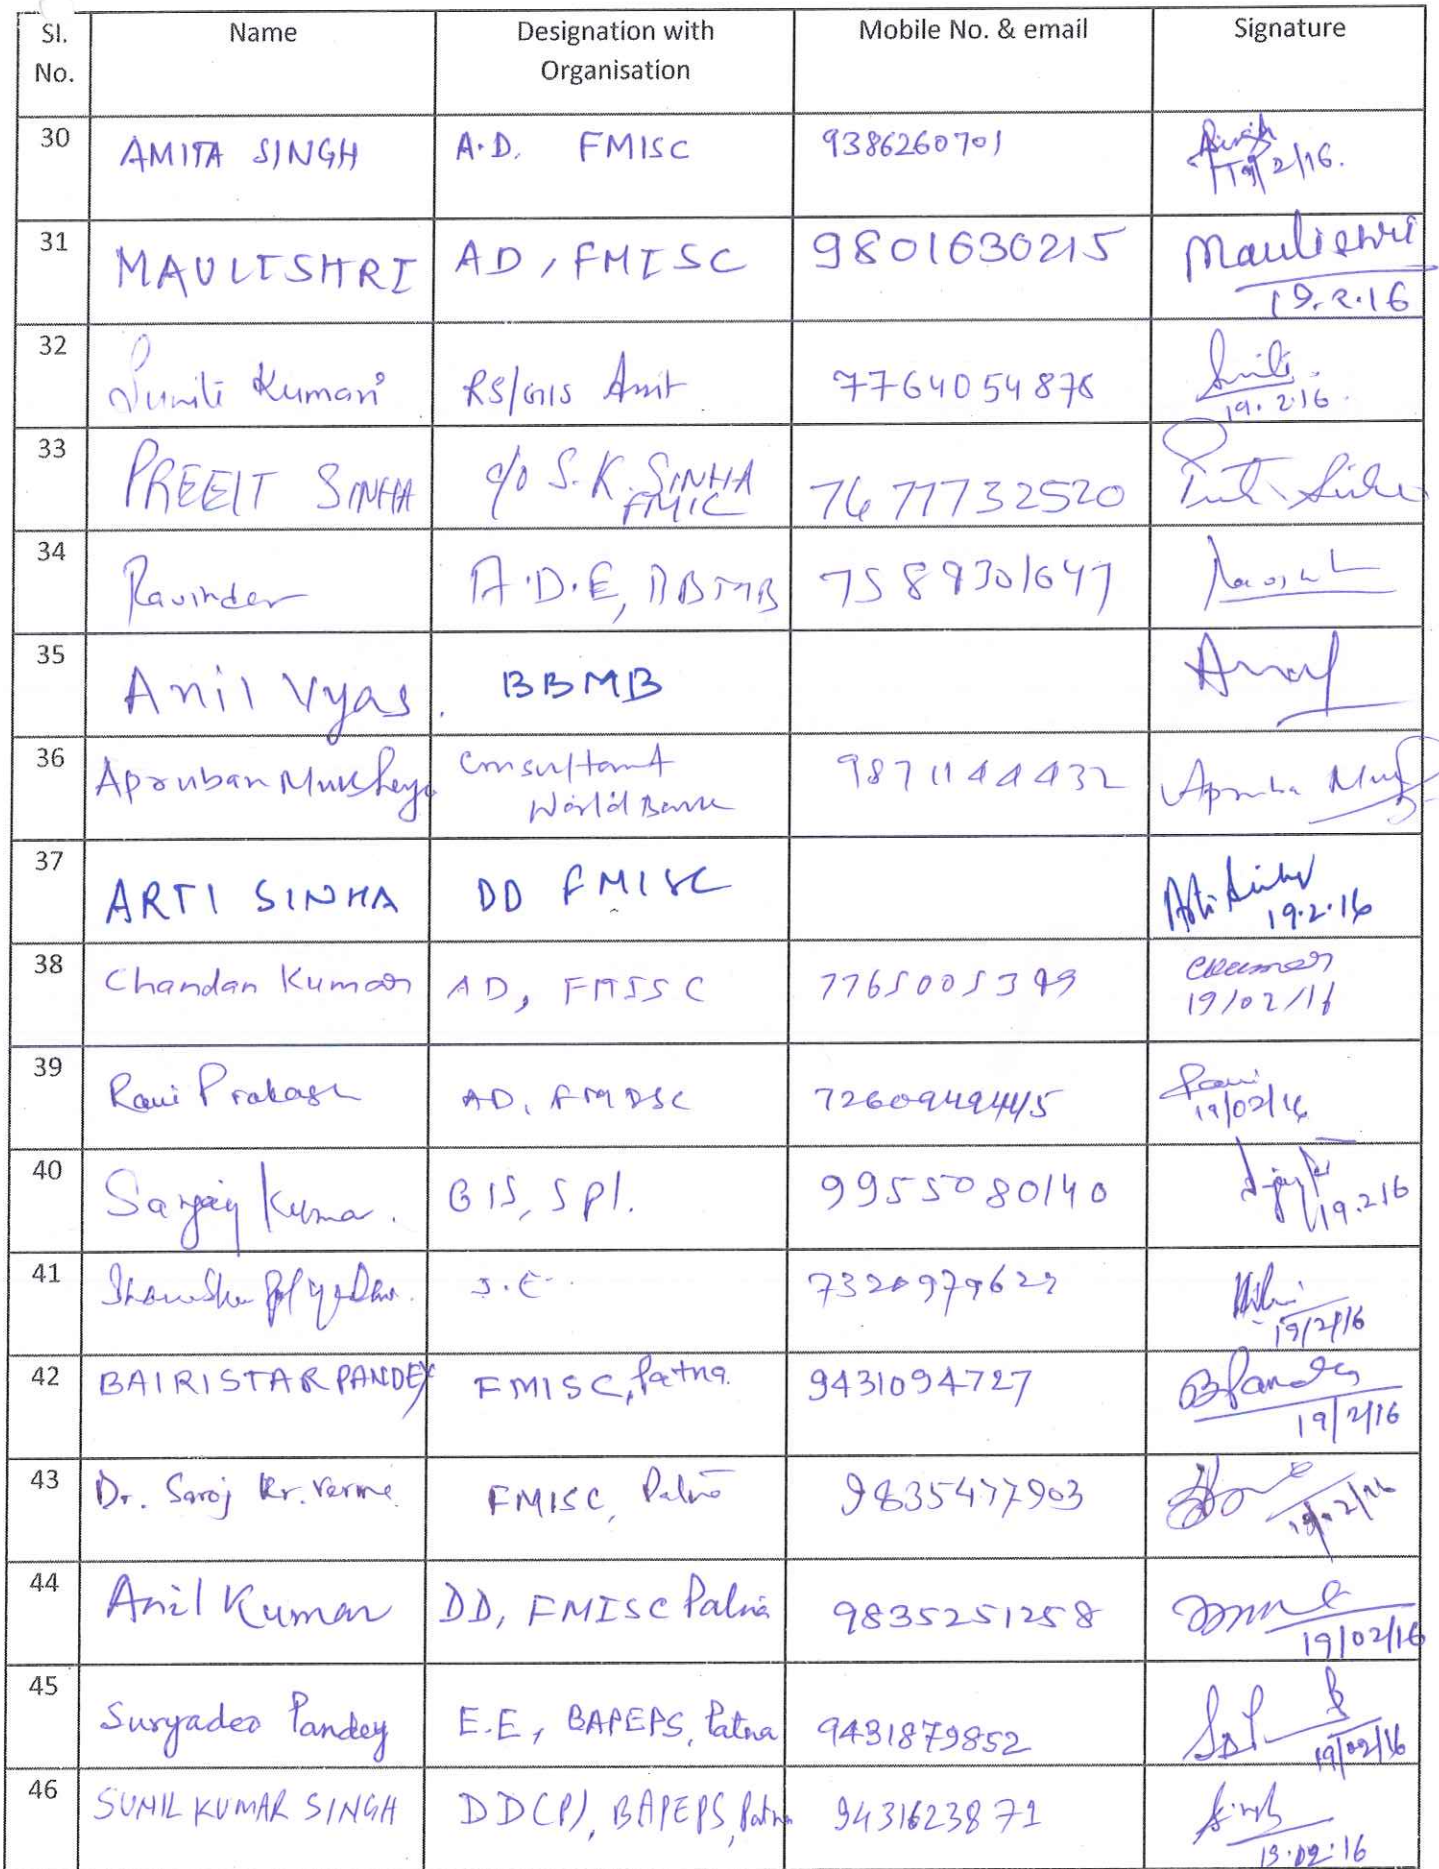 Sl. No. Name Designation with Organisation Mobile No. & email Signature
30 AMITA SINGH A.D. FMISC 9386260701 19/2/16.
31 MAULISHRI AD, FMISC 9801630215 Maulishri 19.2.16
32 Suniti Kumari RS/GIS Asst 7764054876 19.2.16.
33 PREEIT SINHA c/o S.K. SINHA FMIC 7677732520
34 Ravinder A.D.E, BBMB 7589301647
35 Anil Vyas. BBMB
36 Consultant World Bank 9871144432
37 ARTI SINHA DD FMISC Arti Sinha 19.2.16
38 Chandan Kumar AD, FMISC 7765005399 CKumar 19/02/16
39 Ravi Prakash AD, FMISC Ravi 19/02/16
40 Sanjay Kumar. GIS, Spl. 9955080140 19.2.16
41 J.E. 19/2/16
42 BAIRISTAR PANDEY FMISC, Patna. 9431094727 BPandey 19/2/16
43 Dr. Saroj Kr. Verma. FMISC, Patna 9835477903 19/02/16
44 Anil Kumar DD, FMISC Patna 9835251258 19/02/16
45 Suryadeo Pandey E.E, BAPEPS, Patna 9431879852 19/02/16
46 SUNIL KUMAR SINGH DD(P), BAPEPS, Patna 9431623871 Singh 19.02.16